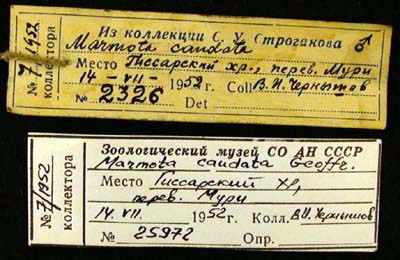 № 7/1952
коллектора
Из коллекции С. У. Строганова ♂
Marmota caudata
Место Гиссарский хр., перев. Мури
14 - VII - 1952 г. Coll В. И. Чернышов
№ 2326 Det
№ 7/1952
коллектора
Зоологический музей СО АН СССР
Marmota caudata Geoffr.
Место Гиссарский хр,
перев. Мури
14. VII. 1952 г. Колл. В.И. Чернышов
№ 25972 Опр.